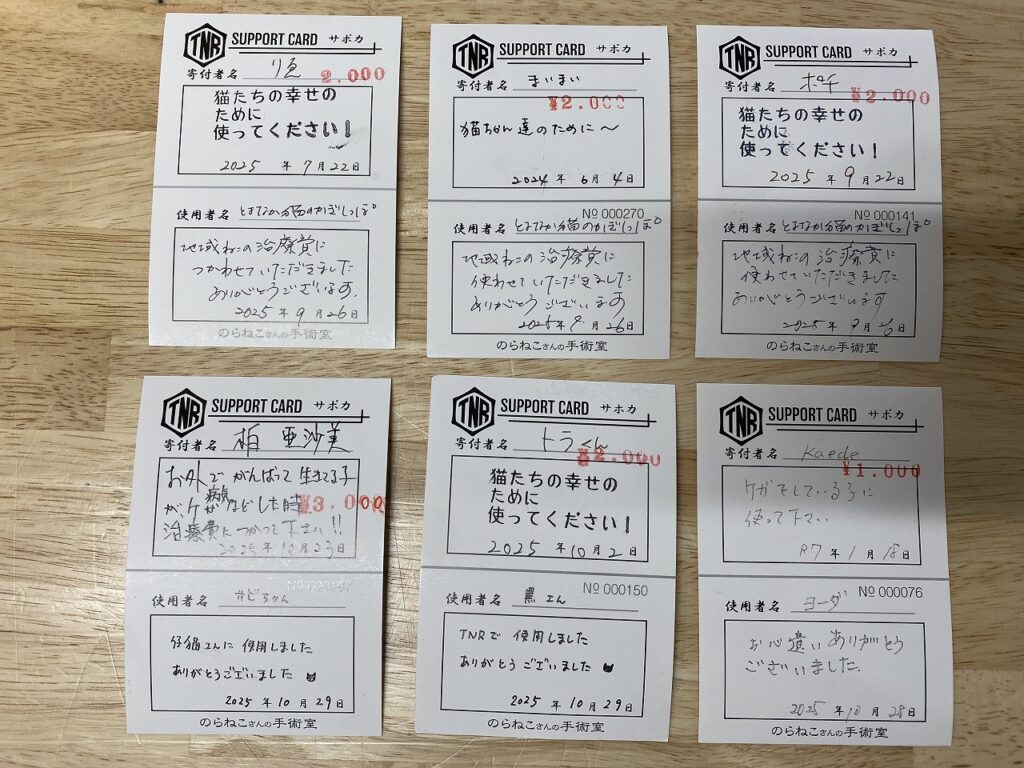 TNR SUPPORT CARD サポカ
寄付者名 りゑ
2.000
猫たちの幸せの
ために
使ってください!
2025 年 7月22日
使用者名 となか猫のかぎしっぽ
地域ねこの治療費に
つかわせていただきました
ありがとうございます.
2025年9月26日
のらねこさんの手術室
TNR SUPPORT CARD サポカ
寄付者名 まいまい
¥2.000
猫ちゃん達のために〜
2024年 6月 4日
No 000270
使用者名 となか猫のかぎしっぽ
地域ねこの治療費に
使わせていただきました
ありがとうございます
2025年 9月26日
のらねこさんの手術室
TNR SUPPORT CARD サポカ
寄付者名 ポチ
¥2.000
猫たちの幸せの
ために
使ってください!
2025 年 9月22日
No 000141
使用者名 となか猫のかぎしっぽ
地域ねこの治療費に
使わせていただきました
ありがとうございます
2025年 9月26日
のらねこさんの手術室
TNR SUPPORT CARD サポカ
寄付者名 柏 亜沙美
お外でがんばって生きてる子
が、ケガ 病気 などした時
¥3.000
治療費につかって下さい!!
2025年10月23日
使用者名 サビちゃん
仔猫さんに使用しました
ありがとうございました
2025年10月29日
のらねこさんの手術室
TNR SUPPORT CARD サポカ
寄付者名 トラくん
¥2.000
猫たちの幸せの
ために
使ってください!
2025 年10月 2日
No 000150
使用者名 黒さん
TNRで 使用しました
ありがとうございました
2025年10月29日
のらねこさんの手術室
TNR SUPPORT CARD サポカ
寄付者名 Kaede
¥1.000
ケガをしている子に
使って下さい
R7 年 1月18日
No 000076
使用者名 ヨーダ
お心遣いありがとう
ございました.
2025年10月28日
のらねこさんの手術室